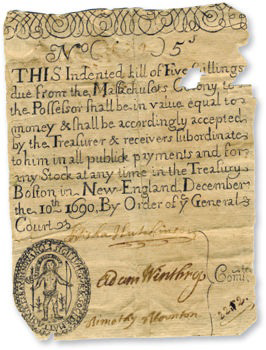 No 5s
THIS Indented bill of Five Shillings
due from the Massachusets Colony to
the Possessor shall be in value equal to
money & shall be accordingly accepted
by the Treasurer & receivers subordinate
to him in all publick payments and for
any Stock at any time in the Treasury
Boston in New-England, December
the 10th 1690. By Order of ye General
Court
Elisha Hutchinson
Adam Winthrop
Timothy Thornton
Comtee